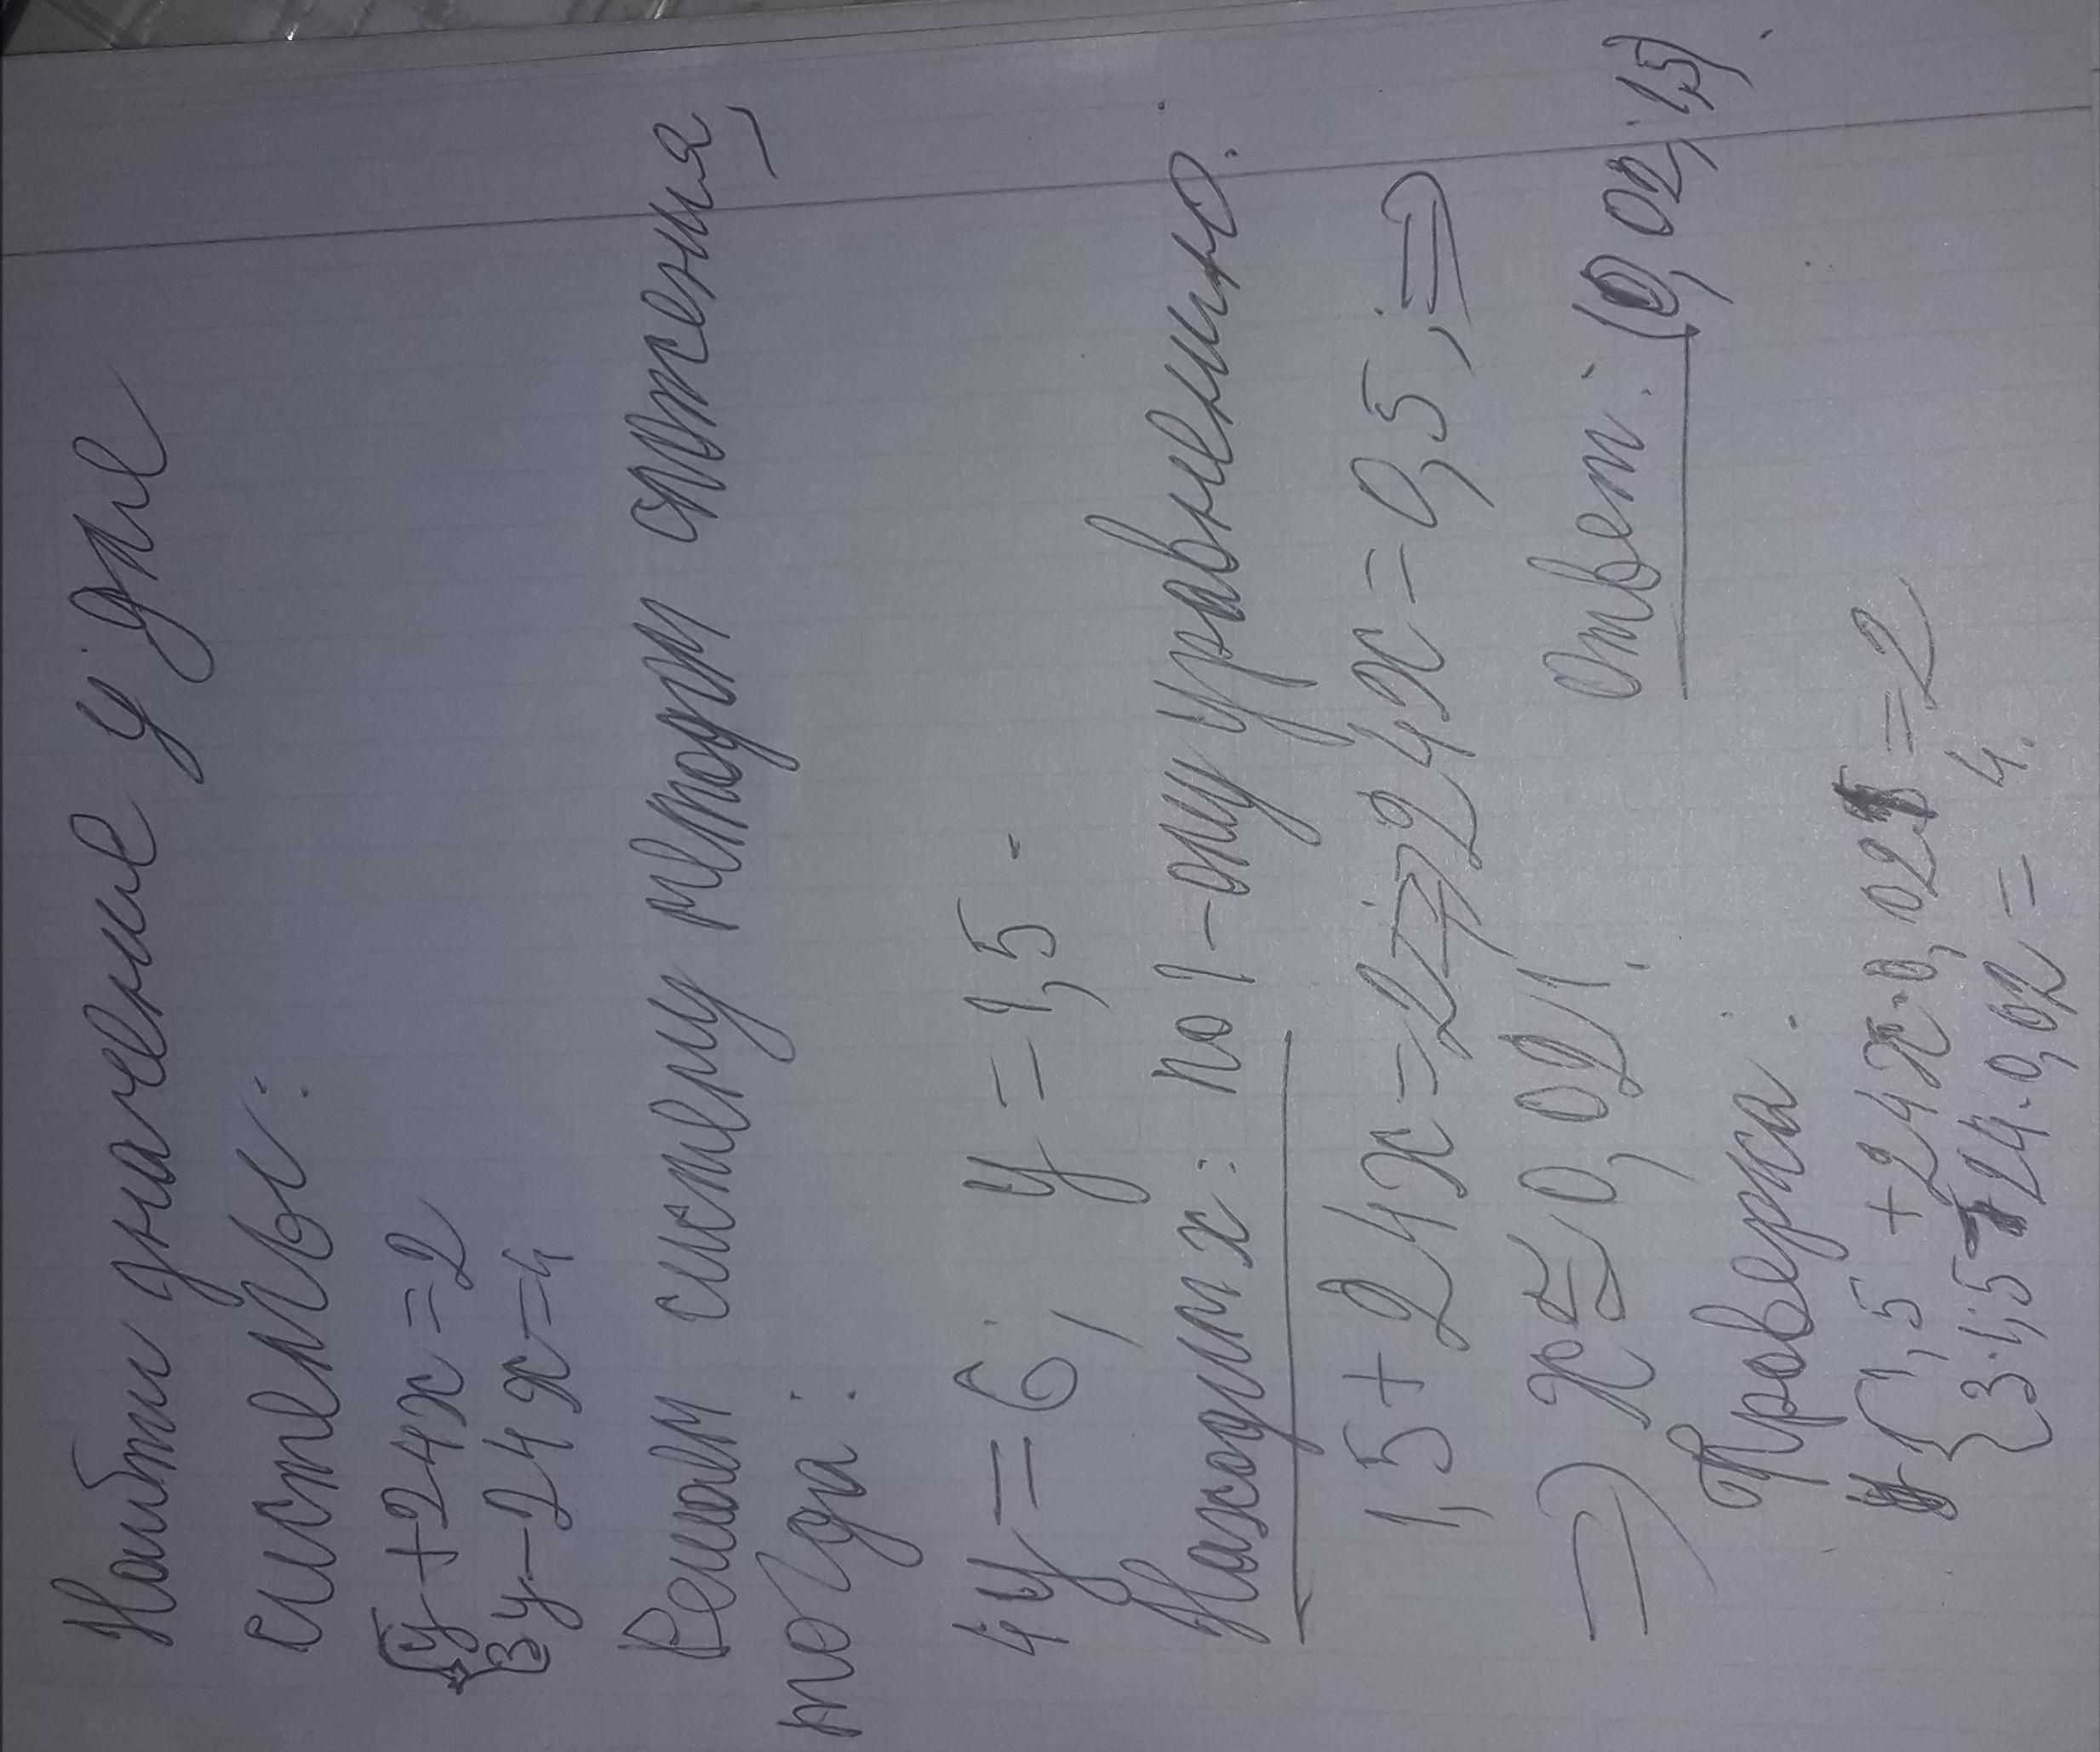 Найти значение у для
системы:
{у+24х=2
{3у-24х=4
Решаем систему методом сложения,
тогда:
4у=6, у=1,5.
Находим х: по 1-ому уравнению.
1,5+24х=2; ⇒ 24х=0,5; ⇒
⇒ х≈0,021.
Ответ: (0,02; 1,5).
Проверка:
{1,5+24·0,021=2
{3·1,5-24·0,02=4.